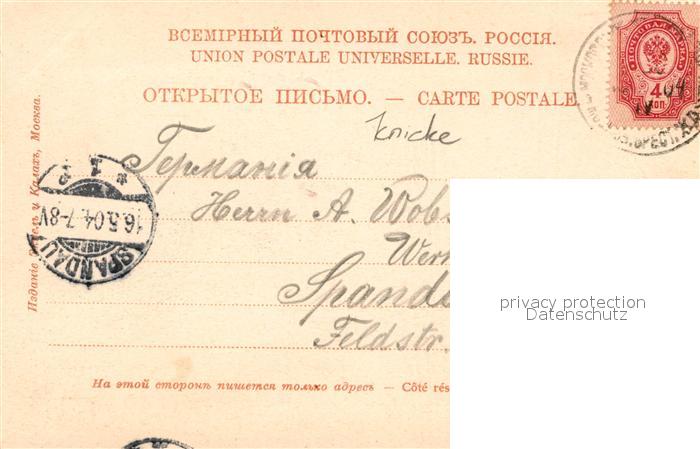 ВСЕМІРНЫЙ ПОЧТОВЫЙ СОЮЗЪ. РОССІЯ.
UNION POSTALE UNIVERSELLE. RUSSIE.
ОТКРЫТОЕ ПИСЬМО. — CARTE POSTALE.
ПОЧТОВАЯ МАРКА
4 КОП.
04
knicke
Германія
Herrn A. Wobs
Wer
Spanda
Feldstr.
SPANDAU
16.5.04.7-8V.
* 1
Изданіе и Москва.
privacy protection
Datenschutz
На этой сторонѣ пишется только адресъ — Côté rés